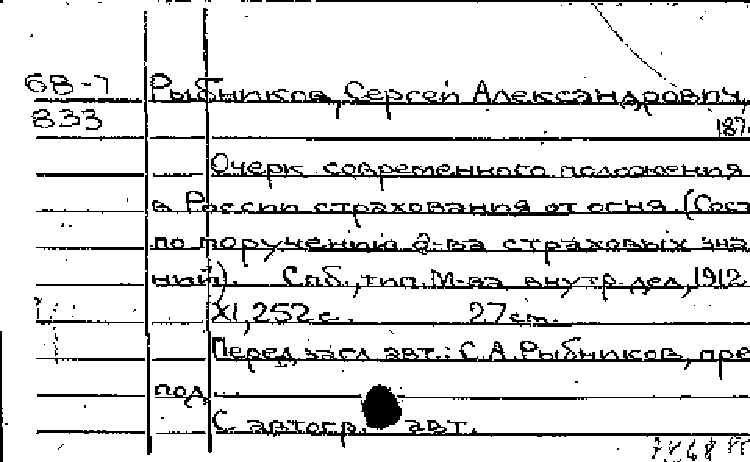 6В-7 Рыбников, Сергей Александрович,
833 187
Очерк современного положения
в России страхования от огня. (Сост
по поручению О-ва страховых зна
ний). Спб., тип. М-ва внутр. дел, 1912
XI, 252 с. 27 см.
Перед загл. авт.: С. А. Рыбников, пре
под
С автогр. авт.